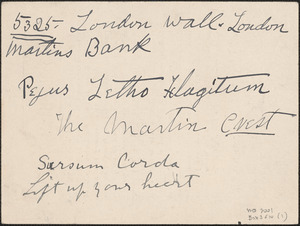 5325 - London Wall - London
Martins Bank
Pejus Letho Flagitum
The Martin Crest
Sursum Corda
Lift up your heart